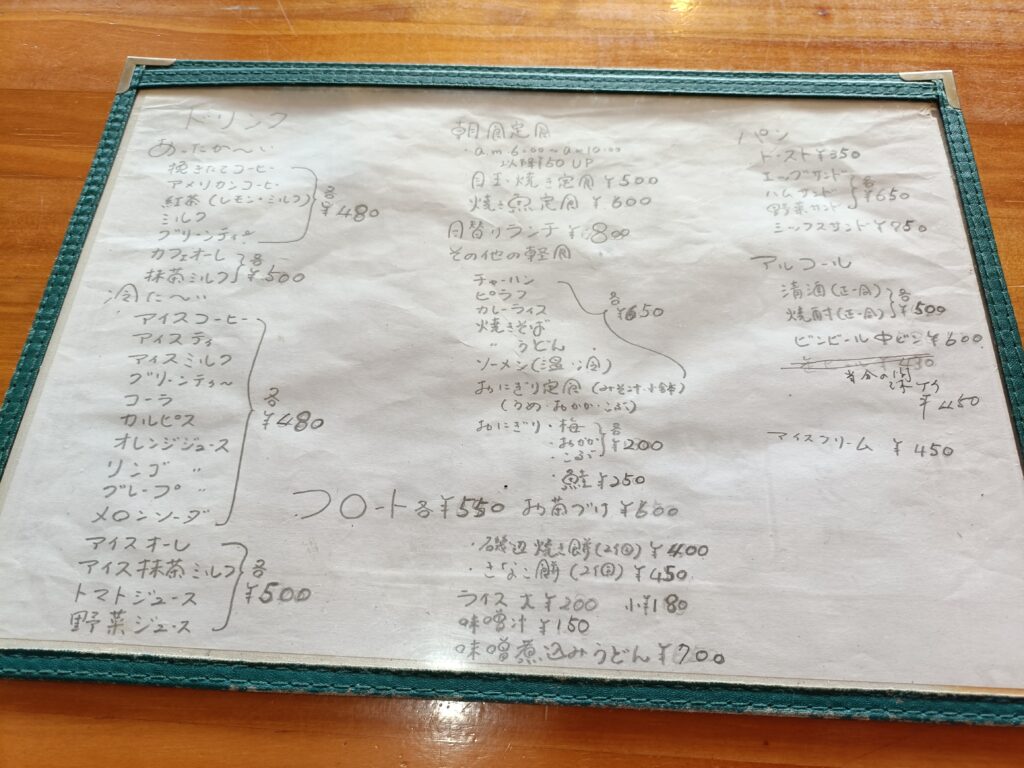 ドリンク
あったか〜い
挽きたてコーヒー
アメリカンコーヒー
紅茶(レモン・ミルク)
ミルク
グリーンティー
各
¥480
カフェオーレ
抹茶ミルク
各
¥500
冷た〜い
アイスコーヒー
アイスティ
アイスミルク
グリーンティ〜
コーラ
カルピス
オレンジジュース
リンゴ 〃
グレープ 〃
メロンソーダ
各
¥480
アイスオーレ
アイス抹茶ミルク
トマトジュース
野菜ジュース
各
¥500
フロート各¥550
朝食定食
・a.m.6:00〜am10:00
以降¥50UP
目玉焼き定食 ¥500
焼き魚定食 ¥600
日替りランチ ¥800
その他の軽食
チャーハン
ピラフ
カレーライス
焼きそば
〃 うどん
ソーメン(温・冷)
おにぎり定食(みそ汁・小鉢)
(うめ・おかか・こぶ)
各
¥650
おにぎり・梅
・おかか
・こぶ
各
¥200
・鮭 ¥250
お茶づけ ¥500
・磯辺焼き餅(2個) ¥400
・きなこ餅(2個) ¥450
ライス 大 ¥200 小¥180
味噌汁 ¥150
味噌煮込みうどん ¥700
パン
トースト ¥350
エッグサンド
ハムサンド
野菜サンド
各
¥650
ミックスサンド ¥750
アルコール
清酒(正一合)
焼酎(正一合)
各
¥500
ビンビール 中ビン ¥600
当分の間
¥450
アイスクリーム ¥450